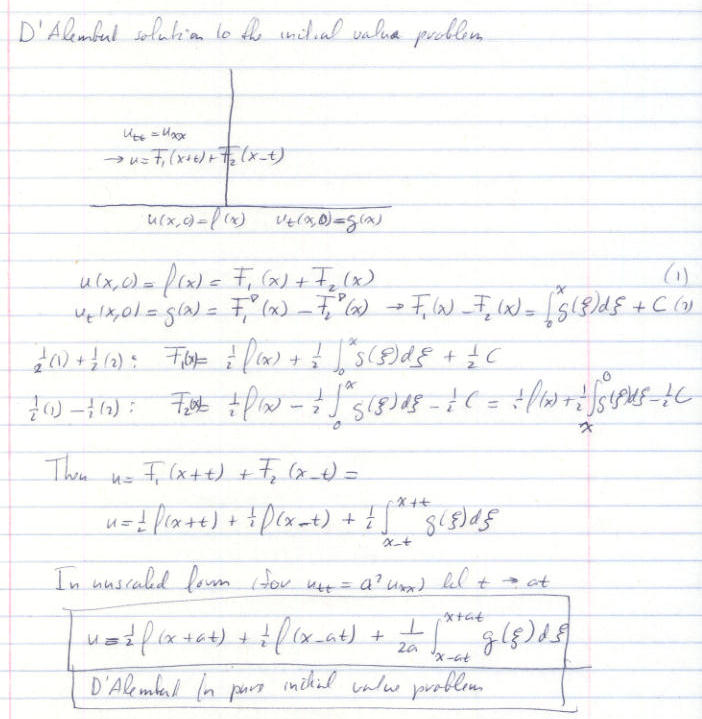 D'Alembert solution to the initial value problem
u_tt = u_xx
→ u = F₁(x+t) + F₂(x-t)
u(x,0) = f(x) u_t(x,0) = g(x)
u(x,0) = f(x) = F₁(x) + F₂(x) (1)
u_t(x,0) = g(x) = F₁'(x) - F₂'(x) → F₁(x) - F₂(x) = ∫₀ˣ g(ξ)dξ + C (2)
½(1) + ½(2): F₁(x) = ½ f(x) + ½ ∫₀ˣ g(ξ)dξ + ½ C
½(1) - ½(2): F₂(x) = ½ f(x) - ½ ∫₀ˣ g(ξ)dξ - ½ C = ½ f(x) + ½ ∫ₓ⁰ g(ξ)dξ - ½ C
Then u = F₁(x+t) + F₂(x-t) =
u = ½ f(x+t) + ½ f(x-t) + ½ ∫_{x-t}^{x+t} g(ξ)dξ
In unscaled form (for u_tt = a² u_xx) let t → at
u = ½ f(x+at) + ½ f(x-at) + 1/2a ∫_{x-at}^{x+at} g(ξ)dξ
D'Alembert for pure initial value problem